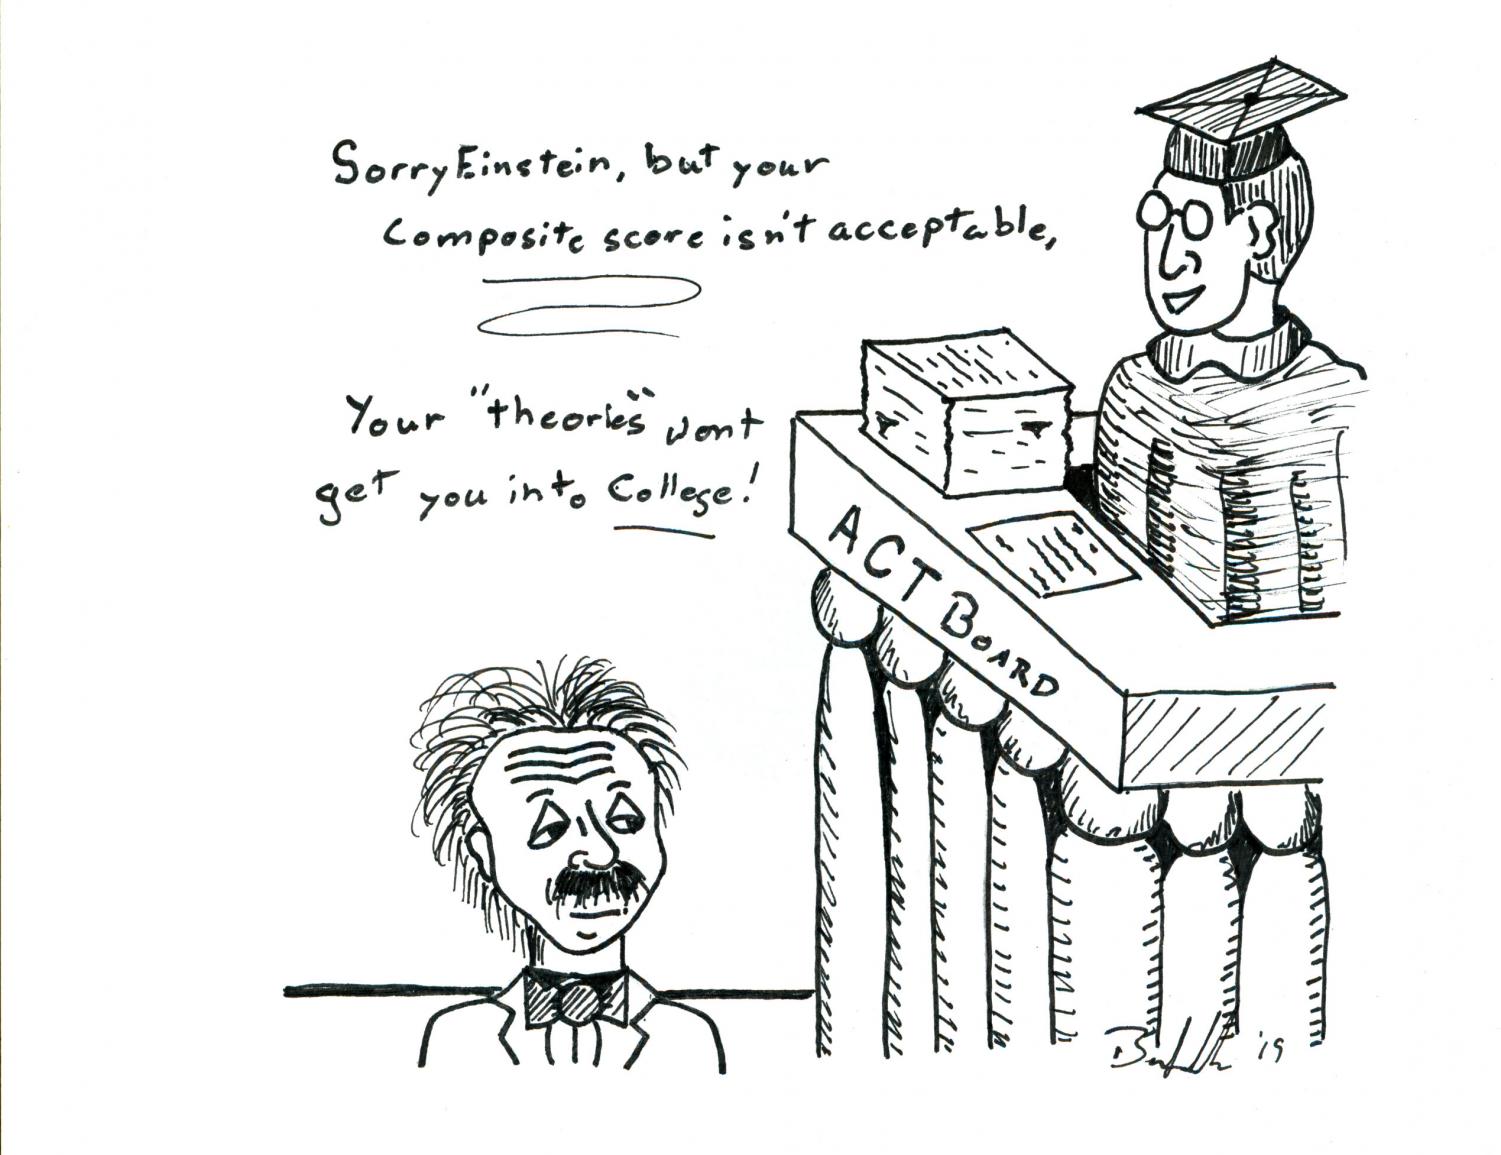 Sorry Einstein, but your
composite score isn't acceptable,
Your "theories" wont
get you into College!
ACT BOARD
'19